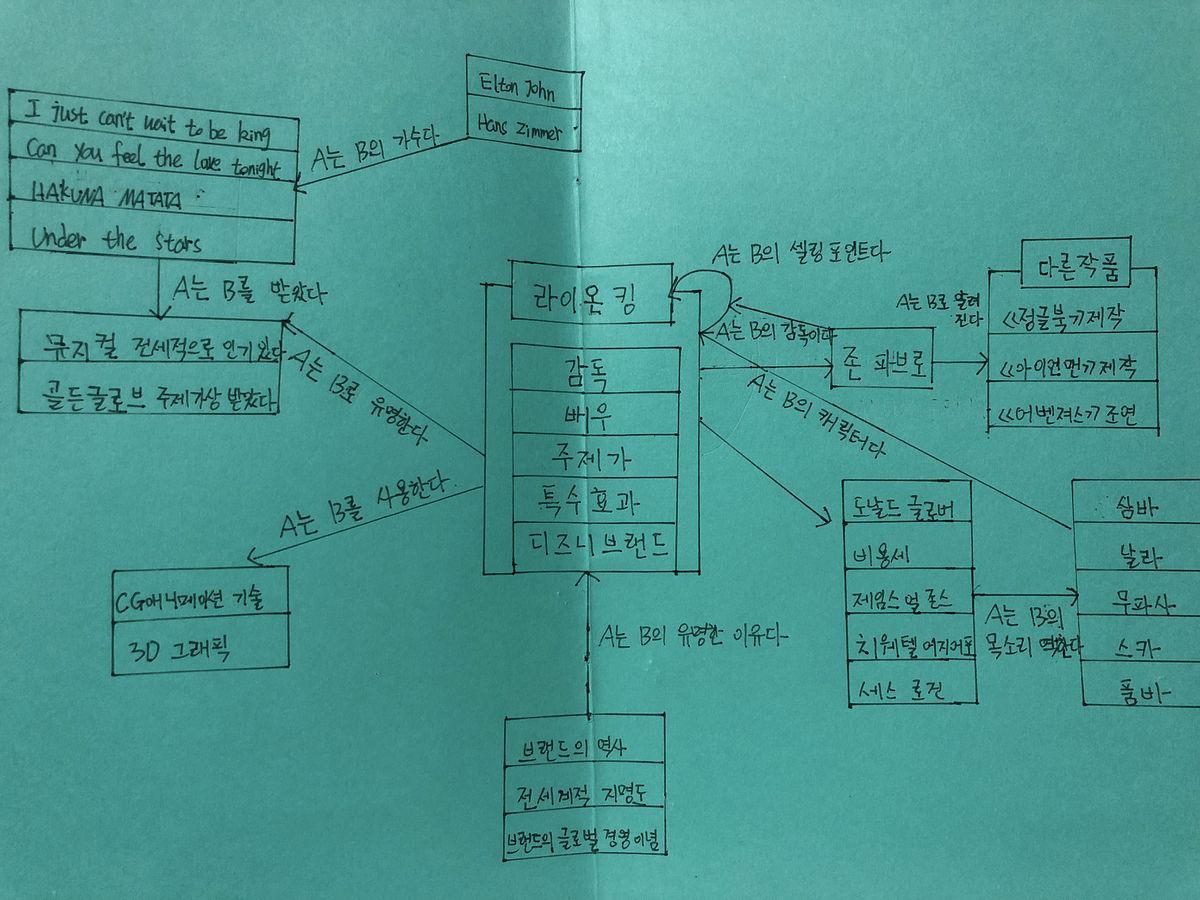 Elton John
Hans Zimmer
A는 B의 가수다
I just can't wait to be king
Can you feel the love tonight
HAKUNA MATATA
Under the stars
A는 B를 받았다
뮤지컬 전세적으로 인기있다
골든글로브 주제가상 받았다
A는 B로 유명한다
A는 B를 사용한다.
CG애니메이션 기술
3D 그래픽
라이온 킹
감독
배우
주제가
특수효과
디즈니브랜드
A는 B의 셀링포인트다
A는 B의 감독이다
존 파브로
A는 B로 알려
진다
다른작품
<<정글북>>제작
<<아이언먼>>제작
<<어벤져스>>조연
A는 B의 캐릭터다
도날드 글로버
비용세
제임스 얼 존스
치웨텔 에지어포
세스 로건
A는 B의
목소리 역한다
심바
날라
무파사
스카
품바
A는 B의 유명한 이유다
브랜드의 역사
전세계적 지명도
브랜드의 글로벌 경영이념